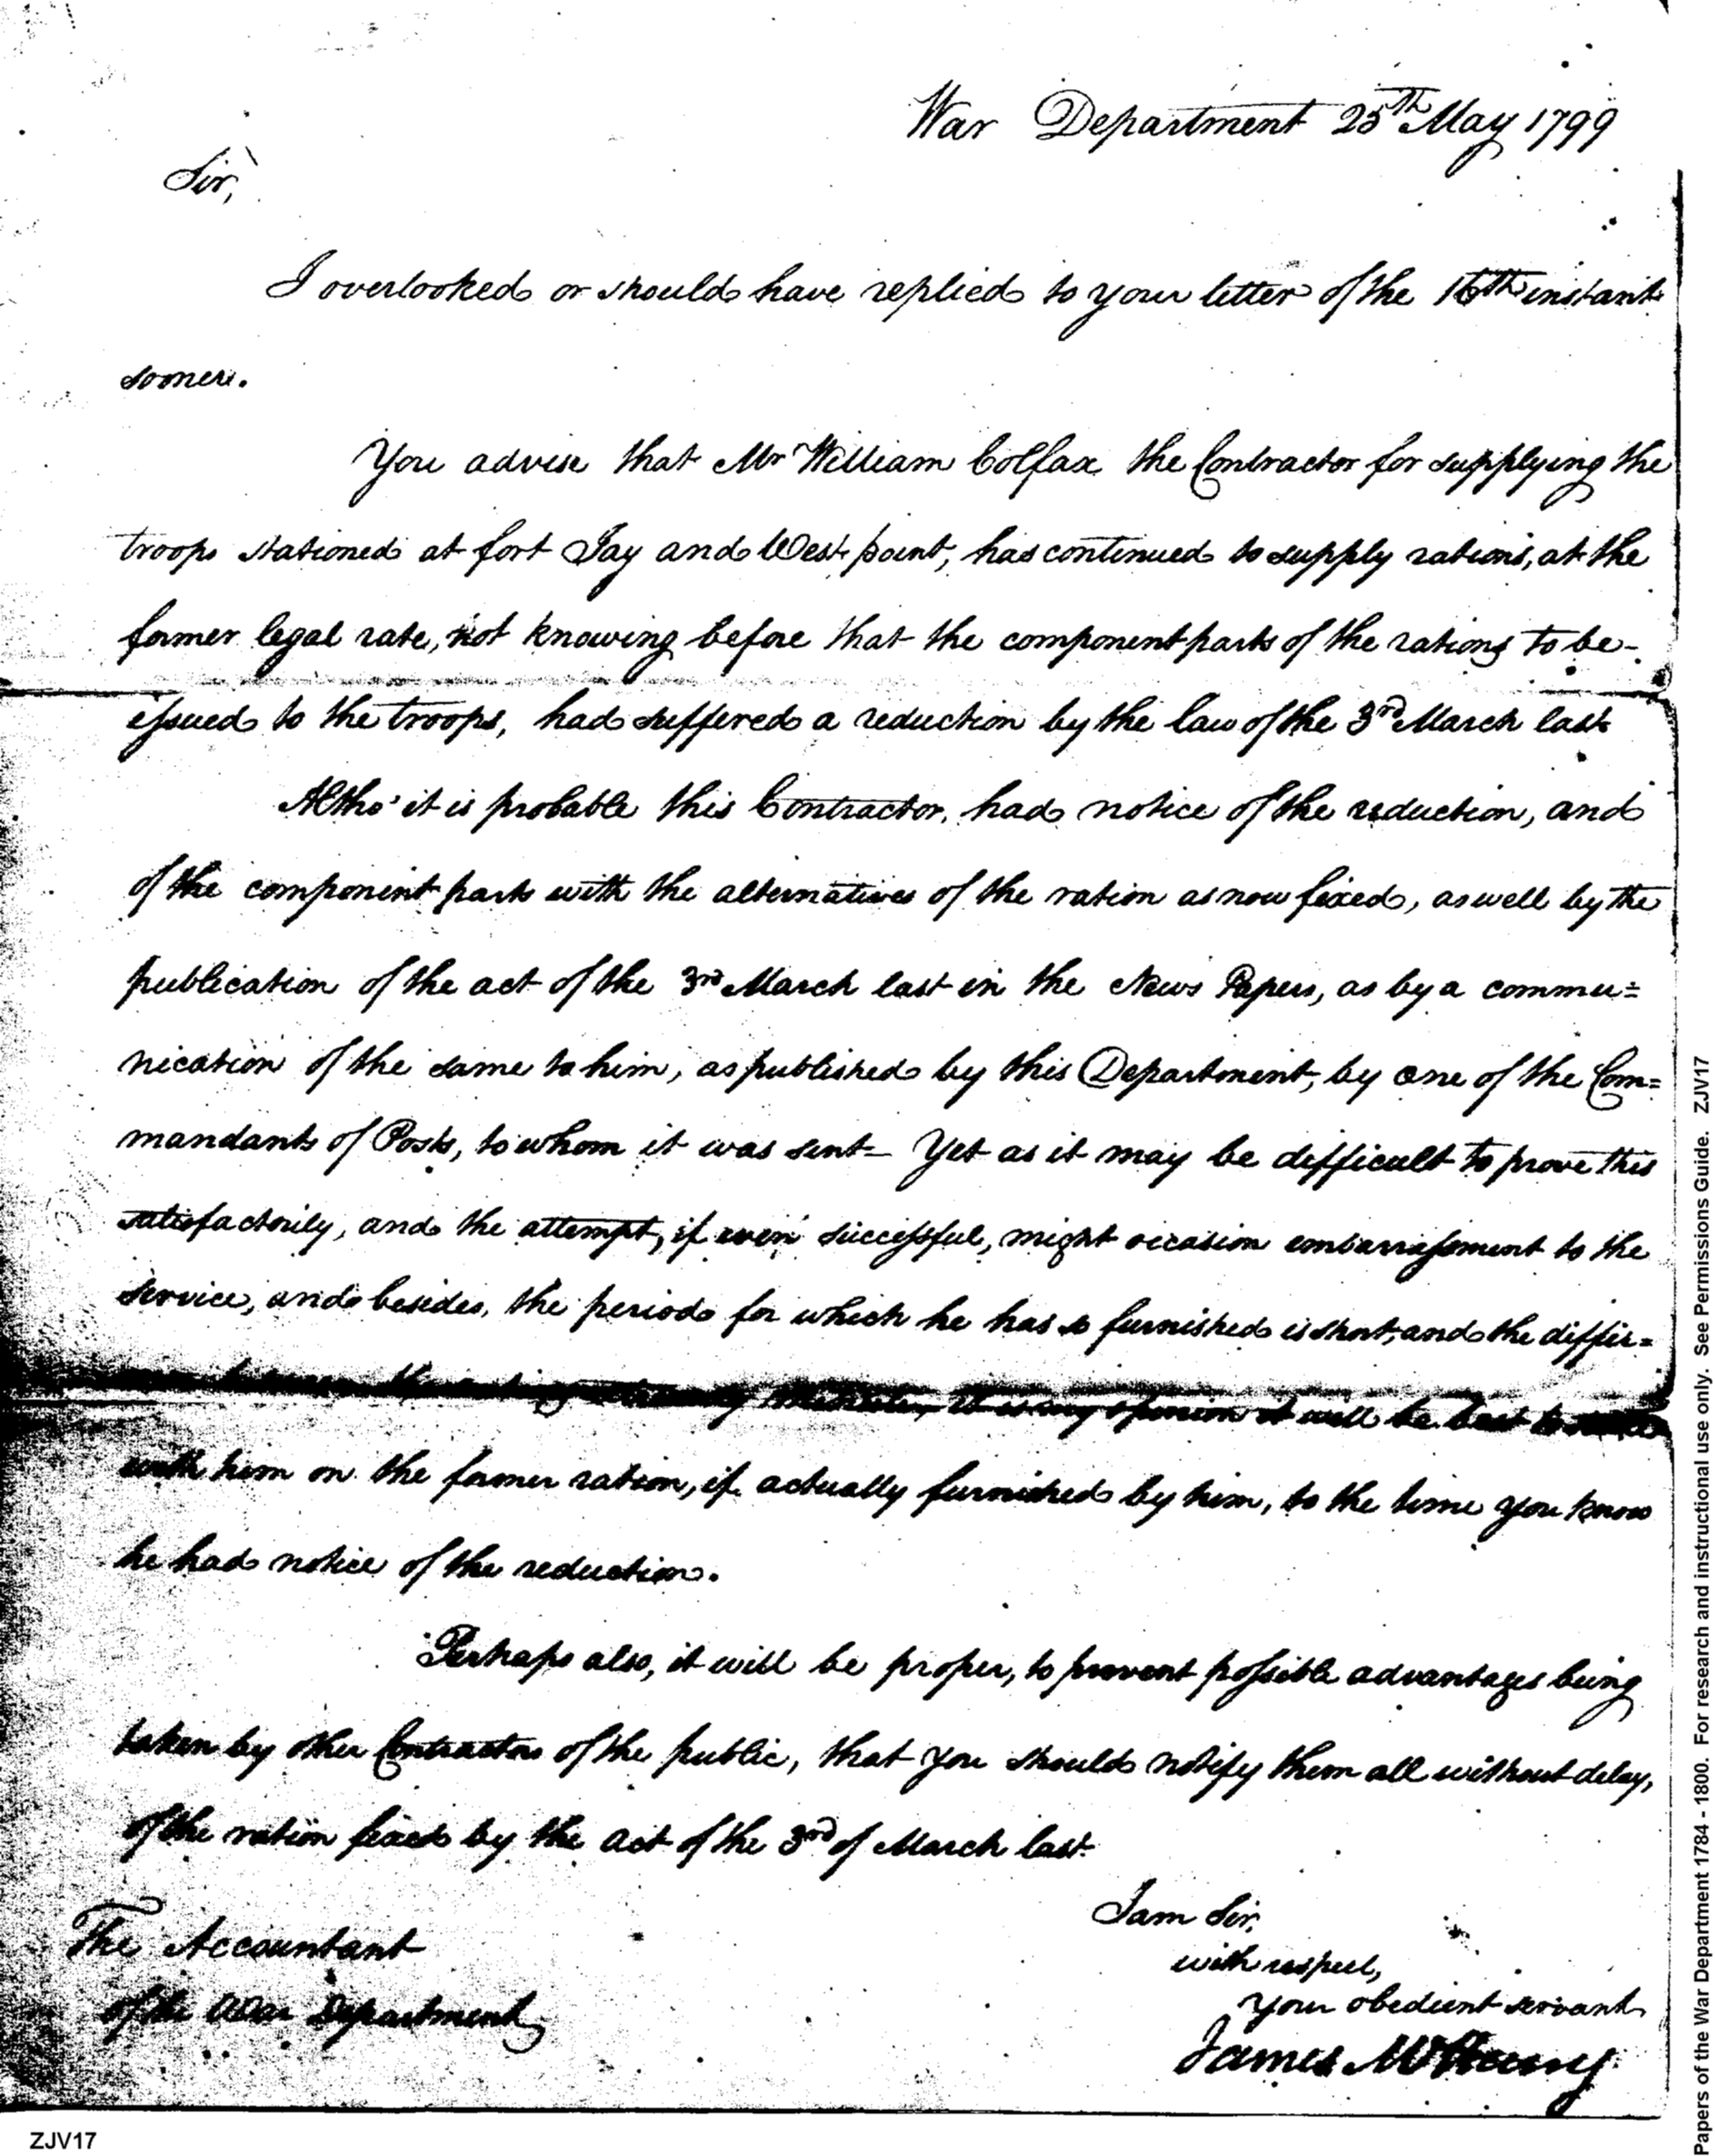 War Department 25th May 1799
Sir,
I overlooked or should have replied to your letter of the 16th instant
sooner.
You advise that Mr William Colfax the Contractor for supplying the
troops stationed at fort Jay and West point, has continued to supply rations, at the
former legal rate, not knowing before that the component parts of the rations to be-
issued to the troops, had suffered a reduction by the law of the 3rd March last
Altho' it is probable this Contractor, had notice of the reduction, and
of the component parts with the alternatives of the ration as now fixed, as well by the
publication of the act of the 3rd March last in the News Papers, as by a commu=
nication of the same to him, as published by this Department, by one of the Com=
mandants of Posts, to whom it was sent– Yet as it may be difficult to prove this
satisfactorily, and the attempt, if even successful, might occasion embarrassment to the
service, and besides, the period for which he has so furnished is short, and the differ=
it is my opinion it will be best to
with him on the former ration, if actually furnished by him, to the time you know
he had notice of the reduction.
Perhaps also, it will be proper, to prevent possible advantages being
taken by other Contractors of the public, that you should notify them all without delay,
of the ration fixed by the act of the 3rd of March last.
I am Sir,
with respect,
your obedient servant
James McHenry
The Accountant
of the War Department
ZJV17
Papers of the War Department 1784 - 1800. For research and instructional use only. See Permissions Guide. ZJV17